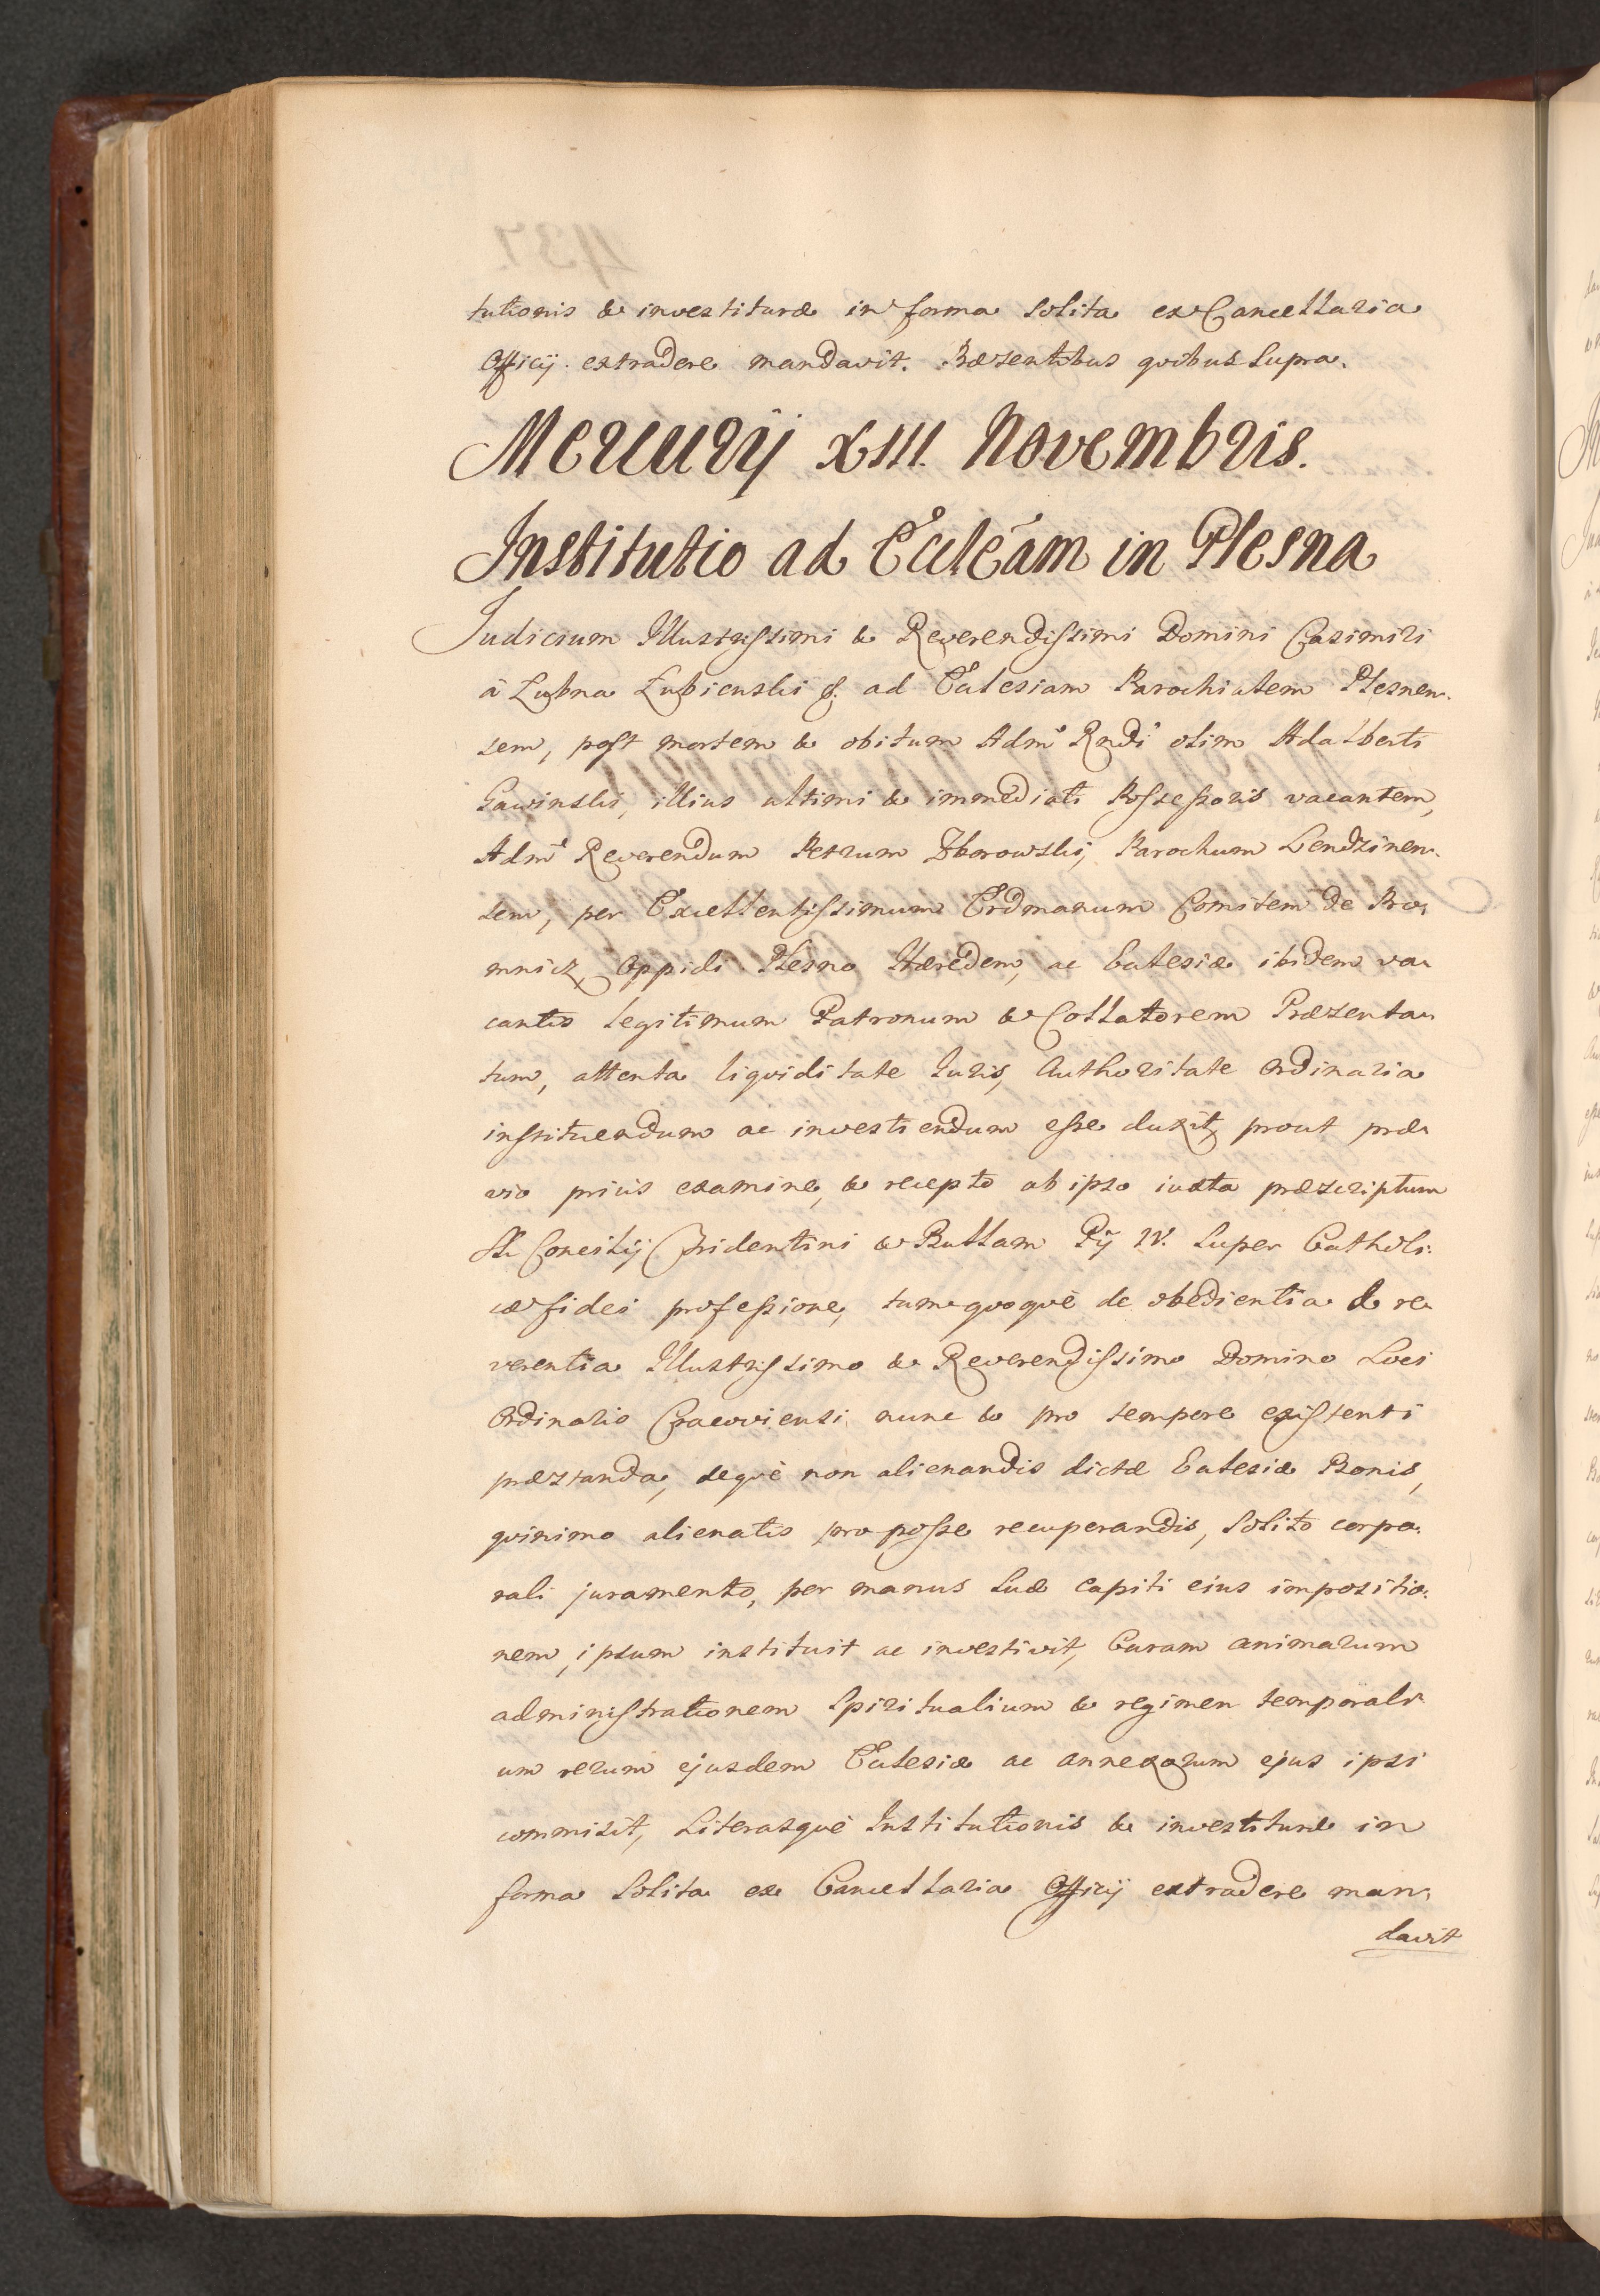 tutionis & investituræ in forma solita ex Cancellaria
Officij extradere mandavit. Præsentibus quibus supra.
Mercurij XIII. Novembris.
Institutio ad Eccleam in Plesna
Judicium Illustrissimi & Reverendissimi Domini Casimiri
à Łubna Łubienski &. ad Ecclesiam Parochialem Plesnen-
sem, post mortem & obitum Admi Rndi olim Adalberti
Gawinski, illius ultimi & immediati Possessoris vacantem,
Admi Reverendum Petrum Zborowski, Parochum Lendzinen-
sem, per Excellentissimum Erdmanum Comitem de Pro-
mnicz, Oppidi Plesno Hæredem, ac Ecclesiæ ibidem va-
cantis legitimum Patronum & Collatorem Præsenta-
tum, attenta liquiditate Iuris, Authoritate Ordinaria
instituendum ac investiendum esse duxit, prout præ-
vio prius examine, & recepto ab ipso iuxta præscriptum
St Concilij Tridentini & Bullam Pij IV. super Catholi-
cæ fidei professione, tum quoquè de obedientia & re-
verentia Illustrissimo & Reverendissimo Domino Loci
Ordinario Cracoviensi nunc & pro tempore existenti
præstanda, dequè non alienandis dictæ Ecclesiæ Bonis,
quinimo alienatis pro posse recuperandis, solito corpo-
rali juramento, per manus suæ capiti eius impositio-
nem, ipsum instituit ac investivit, Curam animarum
administrationem Spiritualium & regimen temporali-
um rerum ejusdem Ecclesiæ ac annexorum ejus ipsi
commisit, Literasquè Institutionis & investituræ in
forma solita ex Cancellaria Officij extradere man-
davit